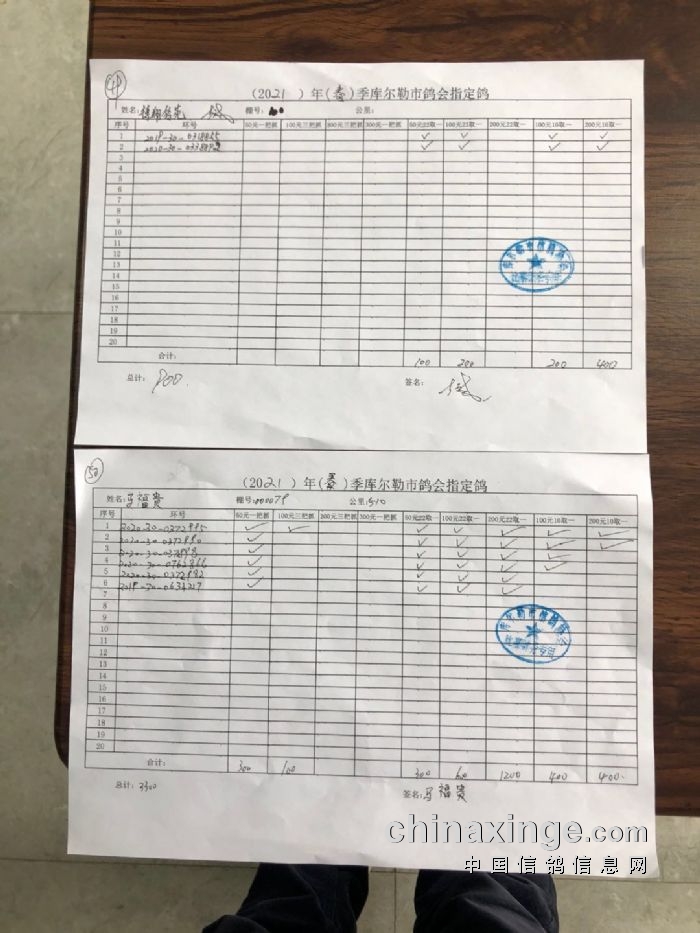 (2021 ) 年(春)季库尔勒市鸽会指定鸽
姓名: 棚号: 公里:
序号 环号 50元一把抓 100元三把抓 300元三把抓 300元一把抓 50元22取一 100元22取一 200元22取一 100元10取一 200元10取一
1 ✓ ✓ ✓ ✓
2 ✓ ✓ ✓ ✓
3
4
5
6
7
8
9
10
11
12
13
14
15
16
17
18
19
20
合计: 100 200 200 400
总计: 900. 签名:
50
(2021 ) 年(夏)季库尔勒市鸽会指定鸽
姓名: 马福贵 棚号: 000079 公里: 510
序号 环号 50元一把抓 100元三把抓 300元三把抓 300元一把抓 50元22取一 100元22取一 200元22取一 100元10取一 200元10取一
1 2020-30-0372995 ✓ ✓ ✓ ✓ ✓ ✓ ✓
2 2020-30-0372990 ✓ ✓ ✓ ✓ ✓ ✓
3 ✓ ✓ ✓ ✓ ✓
4 2020-30-0762866 ✓ ✓ ✓ ✓ ✓
5 2020-30-0372982 ✓ ✓ ✓ ✓
6 2019-30-0634217 ✓ ✓ ✓ ✓
7
8
9
10
11
12
13
14
15
16
17
18
19
20
合计: 300 100 300 600 1200 400 400
总计: 3300 签名: 马福贵
chinaxinge.com
中国信鸽信息网